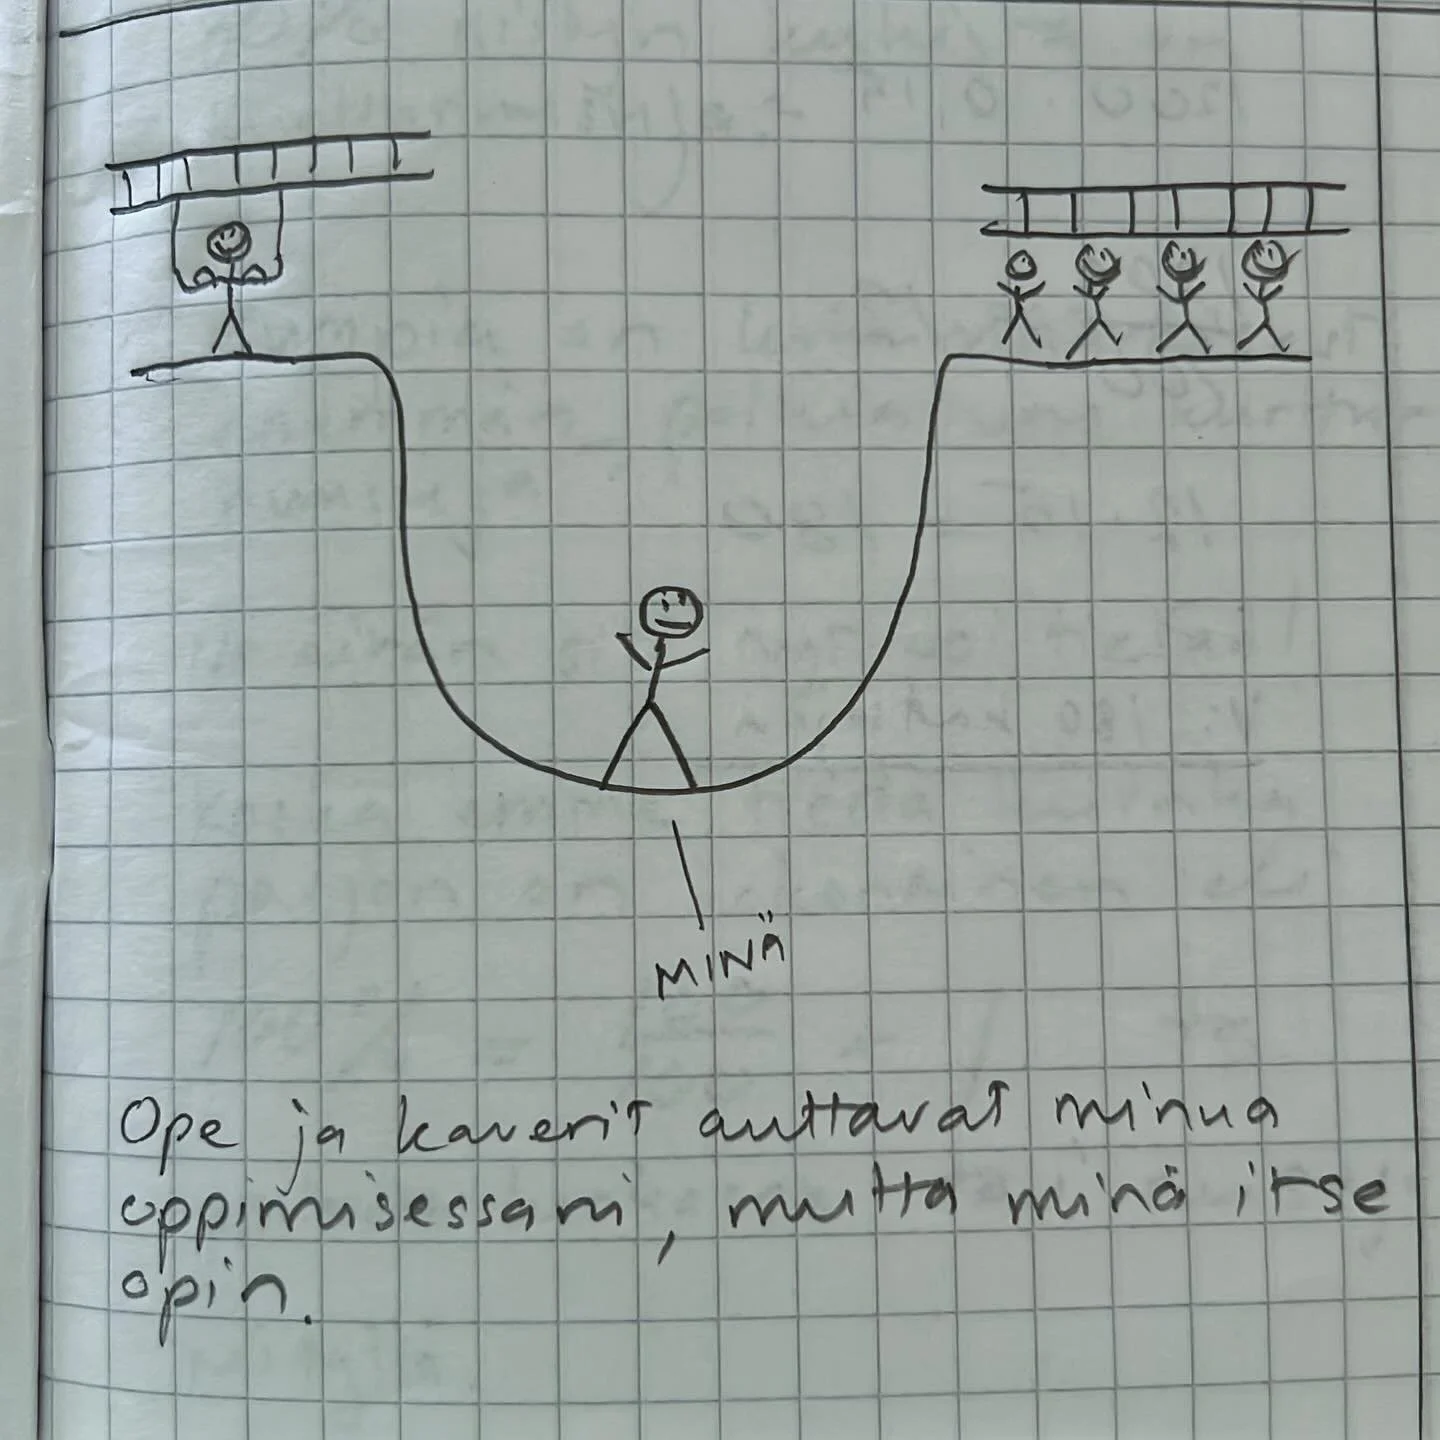 MINÄ
Ope ja kaverit auttavat minua
oppimisessani, mutta minä itse
opin.